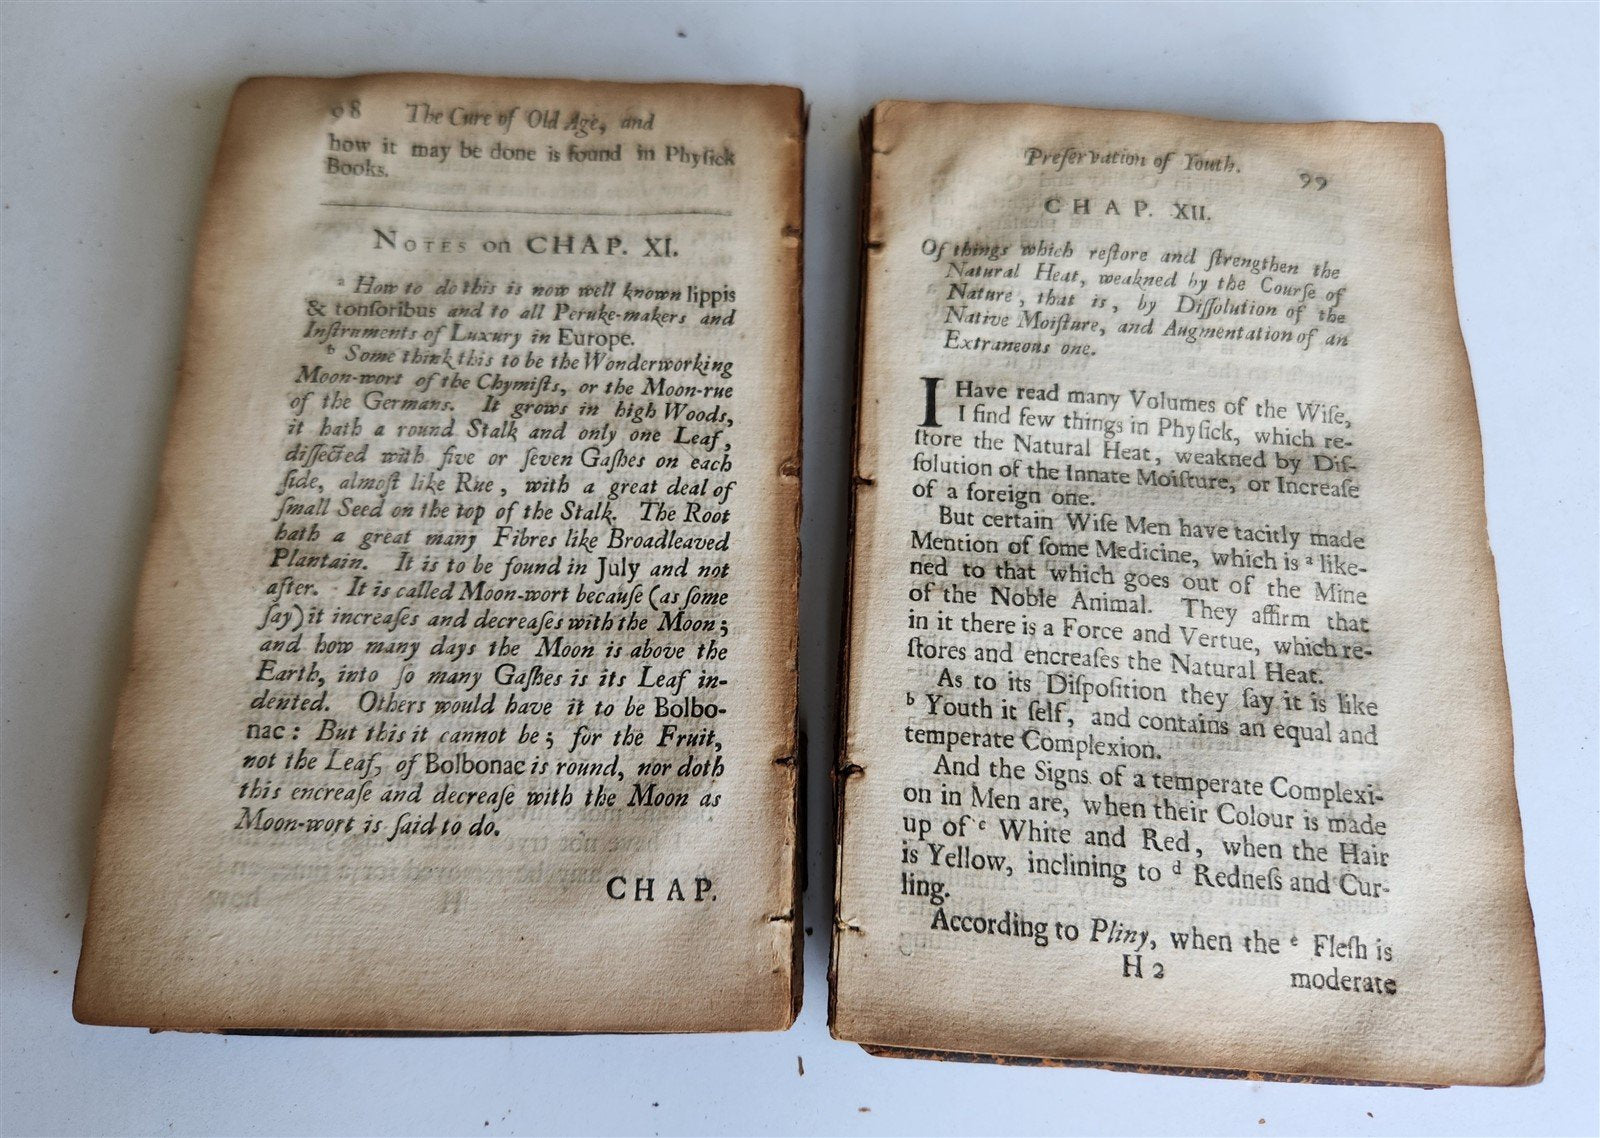 98 The Cure of Old Age, and
how it may be done is found in Phyſick
Books.
NOTES on CHAP. XI.
a How to do this is now well known lippis
& tonſoribus and to all Peruke-makers and
Inſtruments of Luxury in Europe.
b Some think this to be the Wonderworking
Moon-wort of the Chymiſts, or the Moon-rue
of the Germans. It grows in high Woods,
it hath a round Stalk and only one Leaf,
diſſected with five or ſeven Gaſhes on each
ſide, almoſt like Rue, with a great deal of
ſmall Seed on the top of the Stalk. The Root
hath a great many Fibres like Broadleaved
Plantain. It is to be found in July and not
after. It is called Moon-wort becauſe (as ſome
ſay) it increaſes and decreaſes with the Moon;
and how many days the Moon is above the
Earth, into ſo many Gaſhes is its Leaf in-
dented. Others would have it to be Bolbo-
nac: But this it cannot be; for the Fruit,
not the Leaf, of Bolbonac is round, nor doth
this encreaſe and decreaſe with the Moon as
Moon-wort is ſaid to do.
CHAP.
Preſervation of Youth. 99
CHAP. XII.
Of things which reſtore and ſtrengthen the
Natural Heat, weakned by the Courſe of
Nature, that is, by Diſſolution of the
Native Moiſture, and Augmentation of an
Extraneous one.
I Have read many Volumes of the Wiſe,
I find few things in Phyſick, which re-
ſtore the Natural Heat, weakned by Diſ-
ſolution of the Innate Moiſture, or Increaſe
of a foreign one.
But certain Wiſe Men have tacitly made
Mention of ſome Medicine, which is a like-
ned to that which goes out of the Mine
of the Noble Animal. They affirm that
in it there is a Force and Vertue, which re-
ſtores and encreaſes the Natural Heat.
As to its Diſpoſition they ſay it is like
b Youth it ſelf, and contains an equal and
temperate Complexion.
And the Signs of a temperate Complexi-
on in Men are, when their Colour is made
up of c White and Red, when the Hair
is Yellow, inclining to d Redneſs and Cur-
ling.
According to Pliny, when the e Fleſh is
H 2 moderate